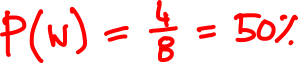 P(W) = 4/8 = 50%